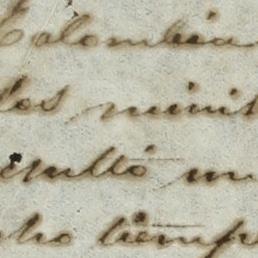 Colombia
dos minis
esultó un
ucho tiemp